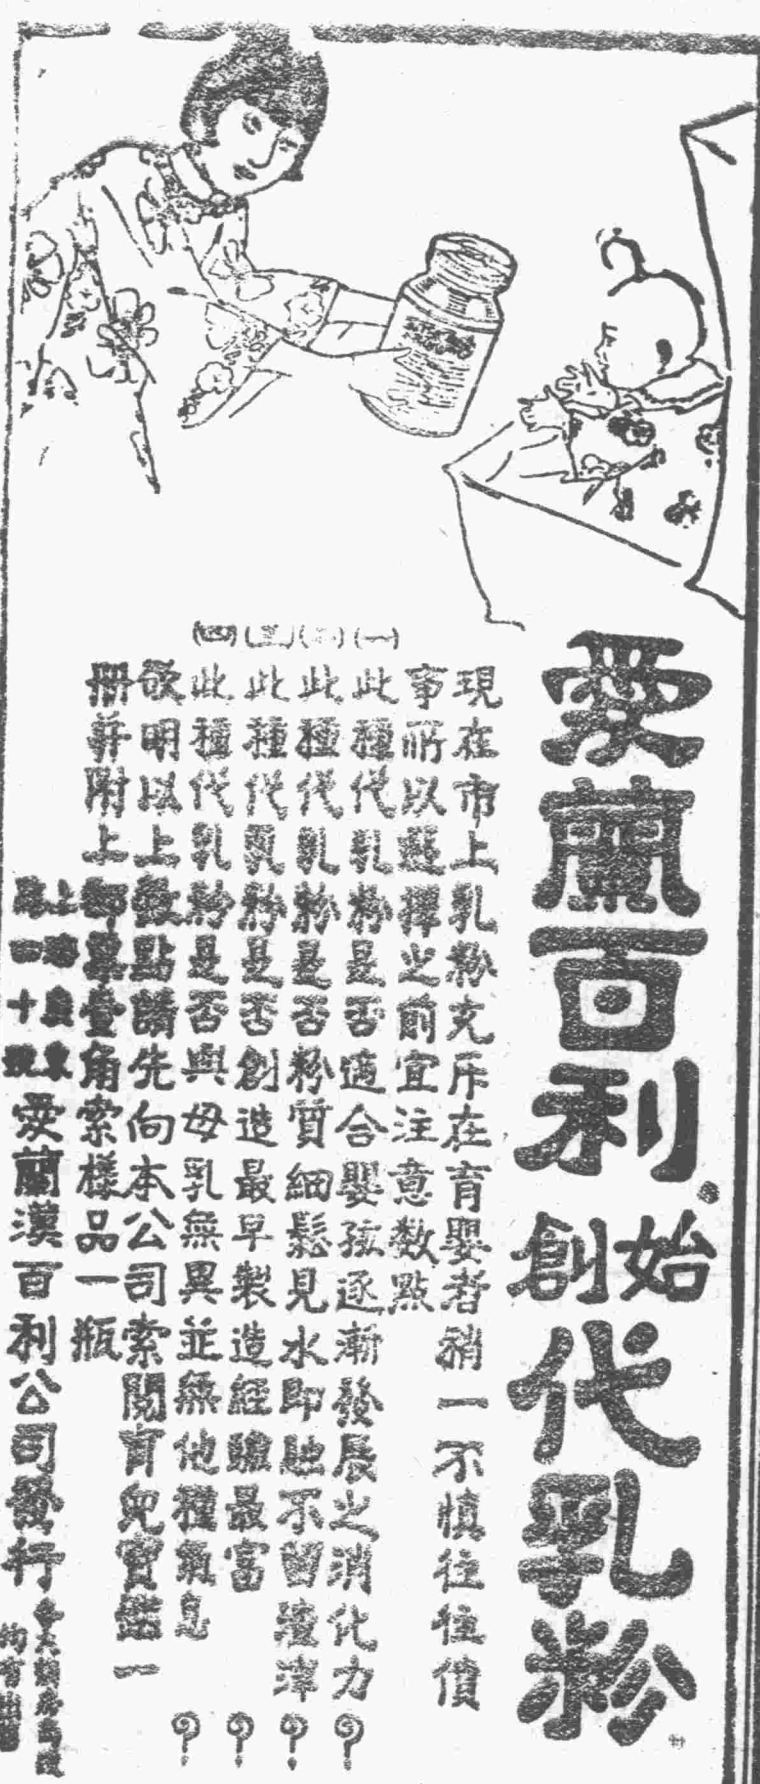 愛蘭百利始創代乳粉
現在市上乳粉充斥在育嬰者稍一不慎往往僨
事所以選擇之前宜注意數點
(一)此種代乳粉是否適合嬰孩逐漸發展之消化力?
(二)此種代乳粉是否粉質細鬆見水即融不留渣滓?
(三)此種代乳粉是否創造最早製造經驗最富?
(四)此種代乳粉是否與母乳無異並無他種氣息?
欲明以上數點請先向本公司索閱育兒寶鑑一
冊并附上郵票壹角索樣品一瓶
上海
四十號
愛蘭漢百利公司發行